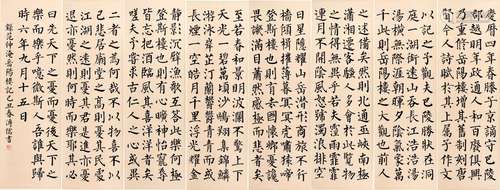 慶曆四年春滕子京謫守巴陵
郡越明年政通人和百廢具興
乃重修岳陽樓增其舊制刻唐
賢今人詩賦于其上屬予作文
以記之予觀夫巴陵勝狀在洞
庭一湖銜遠山吞長江浩浩湯
湯橫無際涯朝暉夕陰氣象萬
千此則岳陽樓之大觀也前人
之述備矣然則北通巫峽南極
瀟湘遷客騷人多會於此覽物
之情得無異乎若夫霪雨霏霏
連月不開陰風怒號濁浪排空
日星隱耀山嶽潛形商旅不行
檣傾楫摧薄暮冥冥虎嘯猿啼
登斯樓也則有去國懷鄉憂讒
畏譏滿目蕭然感極而悲者矣
至若春和景明波瀾不驚上下
天光一碧萬頃沙鷗翔集錦鱗
游泳岸芷汀蘭鬱鬱青青而或
長煙一空皓月千里浮光耀金
靜景沉璧漁歌互答此樂何極
登斯樓也則有心曠神怡寵辱
皆忘把酒臨風其喜洋洋者矣
嗟夫予嘗求古仁人之心或異
二者之為何哉不以物喜不以
己悲居廟堂之高則憂其民處
江湖之遠則憂其君是進亦憂
退亦憂然則何時而樂耶其必
曰先天下之憂而憂後天下之
樂而樂乎噫微斯人吾誰與歸
時六年九月十五日
錄范仲淹岳陽樓記己丑春溥儒書